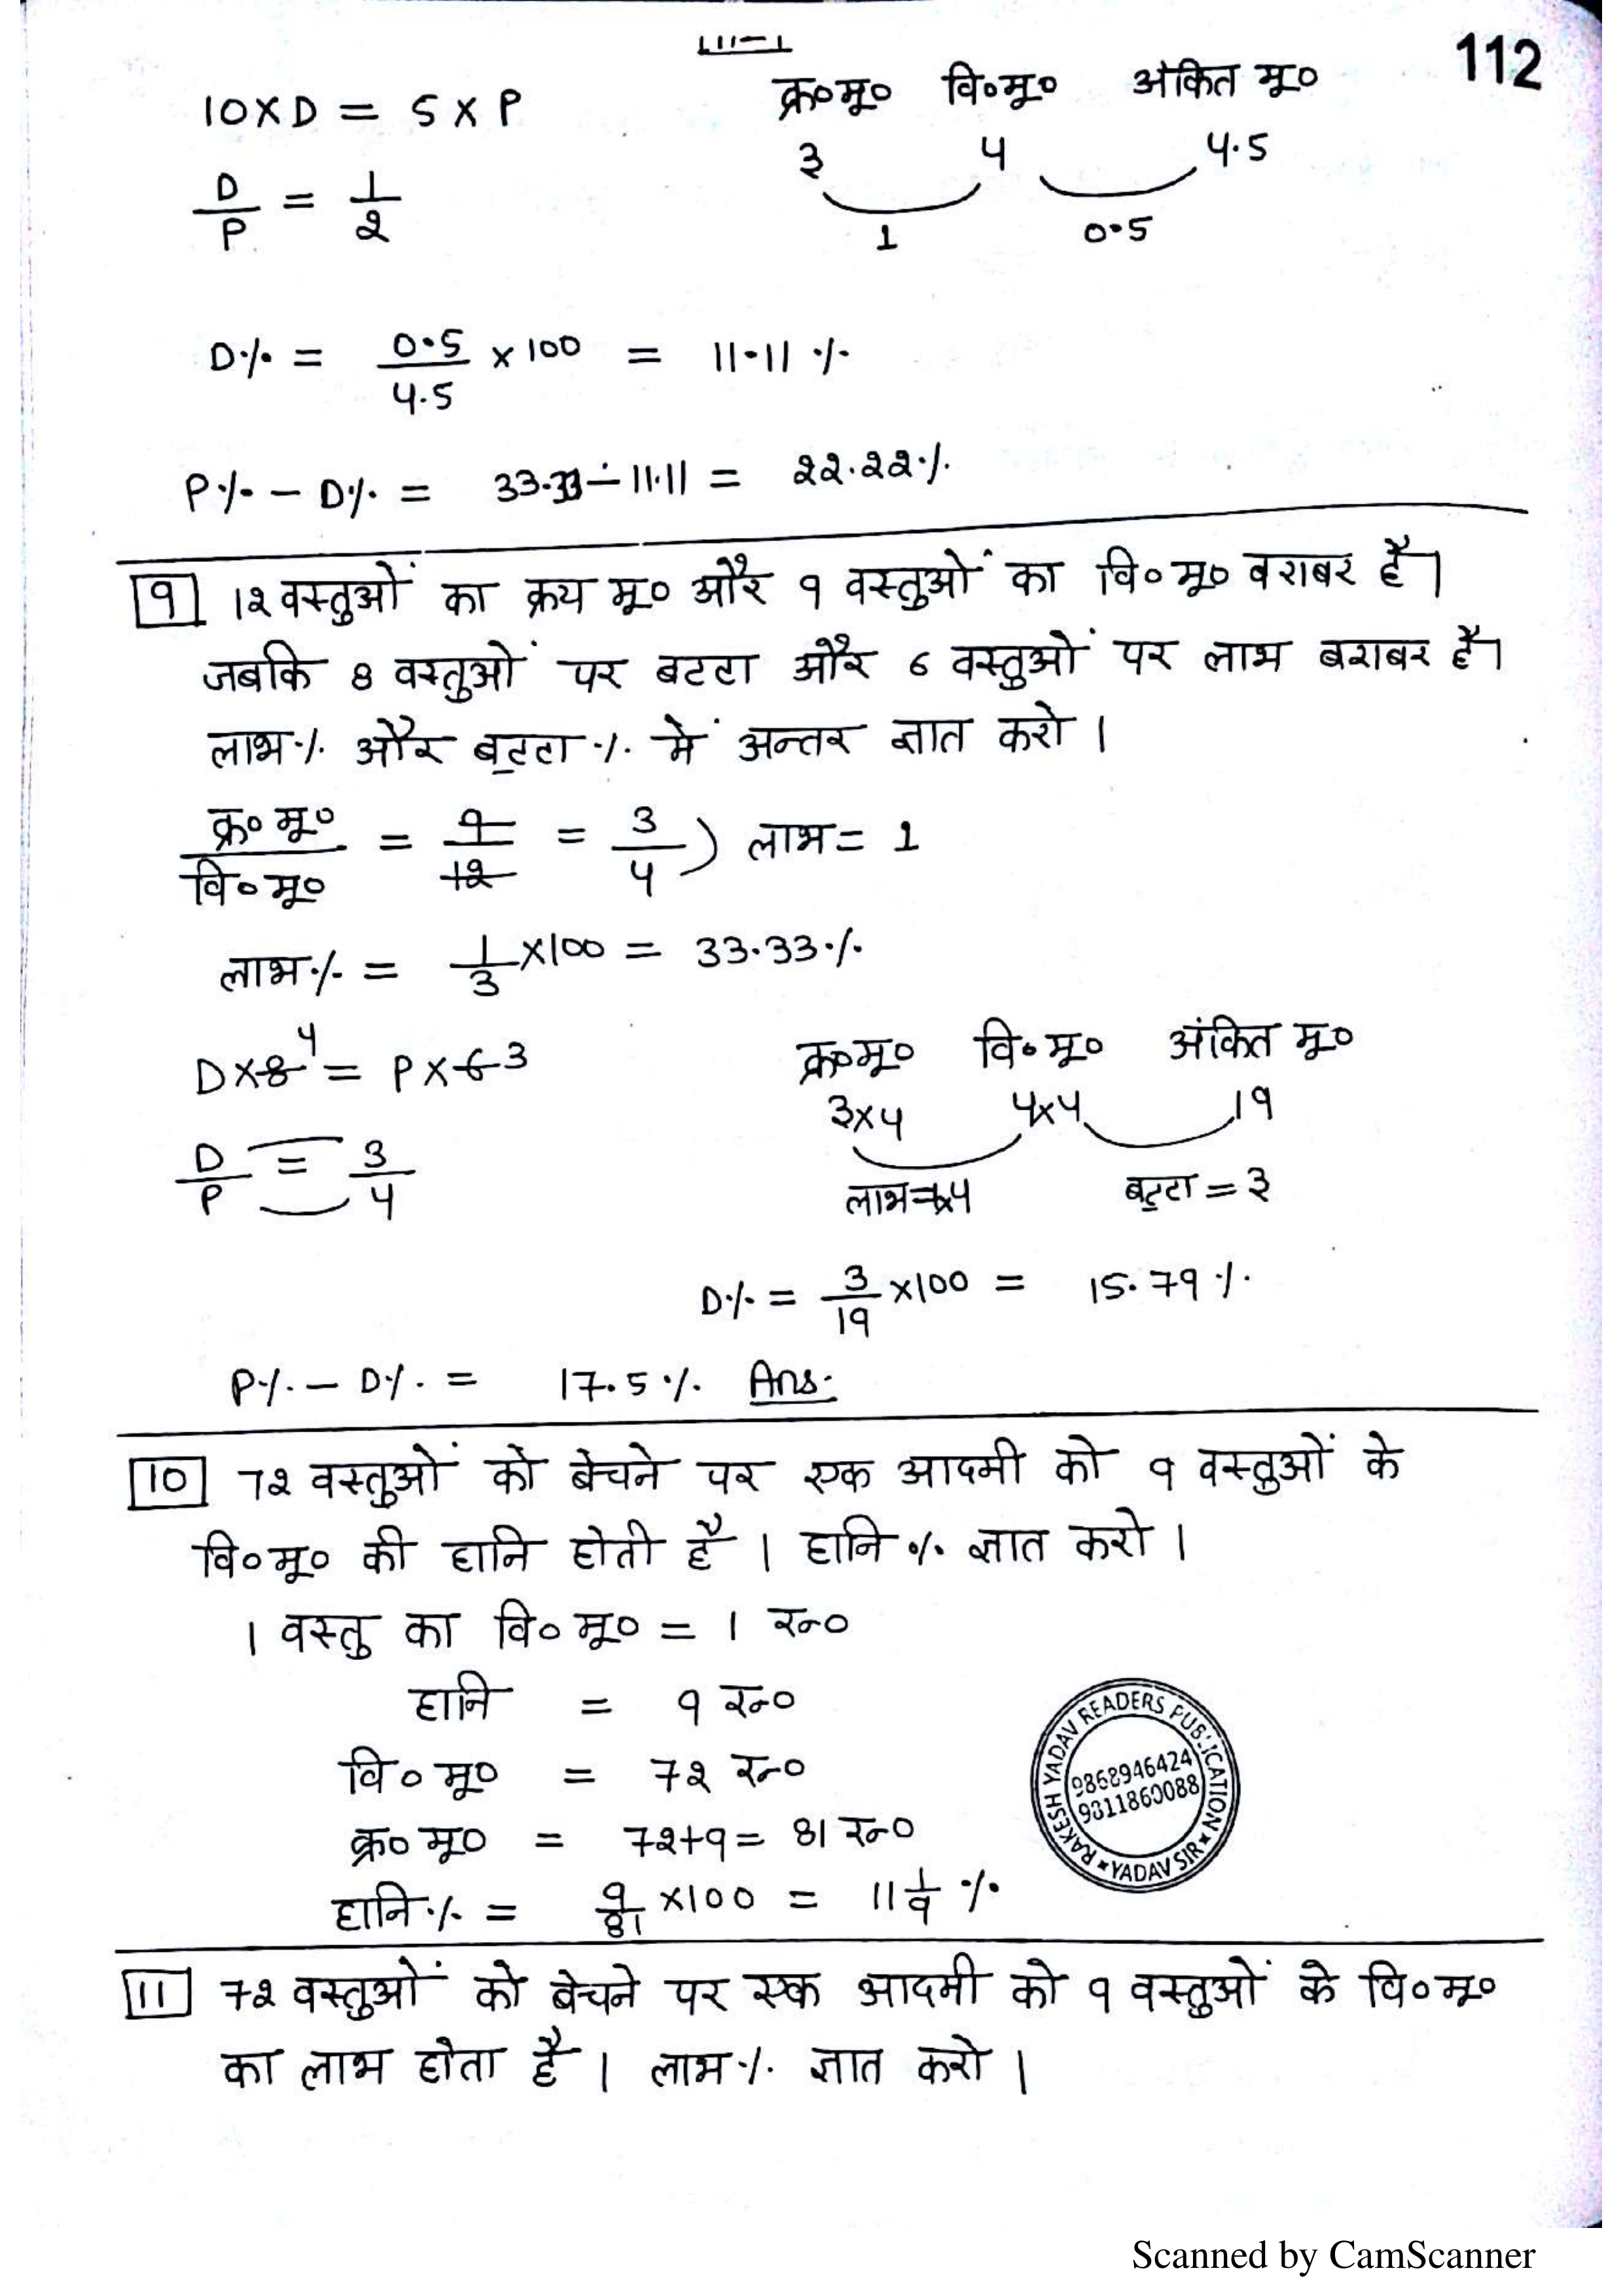 112
क्र०मू० वि०मू० अंकित मू०
10×D = 5×P
3 4 4.5
D/P = 1/2
1 0.5
D% = 0.5/4.5 ×100 = 11.11 %
P% – D% = 33.33 – 11.11 = 22.22%
9 12 वस्तुओं का क्रय मू० और 9 वस्तुओं का वि० मू० बराबर है।
जबकि 8 वस्तुओं पर बटटा और 6 वस्तुओं पर लाभ बराबर है।
लाभ% और बट्टा % में अन्तर ज्ञात करो।
क्र० मू०/वि० मू० = 9/12 = 3/4) लाभ = 1
लाभ% = 1/3 ×100 = 33.33%
D×8 4 = P×6 3
क्र०मू० वि०मू० अंकित मू०
3×4 4×4 19
D/P = 3/4
लाभ=1×4 बट्टा = 3
D% = 3/19 ×100 = 15.79 %
P% – D% = 17.5 % Ans.
10 72 वस्तुओं को बेचने पर एक आदमी को 9 वस्तुओं के
वि० मू० की हानि होती है। हानि % ज्ञात करो।
1 वस्तु का वि० मू० = 1 रु०
हानि = 9 रु०
वि० मू० = 72 रु०
क्र० मू० = 72+9 = 81 रु०
हानि % = 9/81 ×100 = 11 1/9 %
RAKESH YADAV READERS PUBLICATION
9868946424
9811860088
YADAV SIR
11 72 वस्तुओं को बेचने पर एक आदमी को 9 वस्तुओं के वि० मू०
का लाभ होता है। लाभ % ज्ञात करो।
Scanned by CamScanner